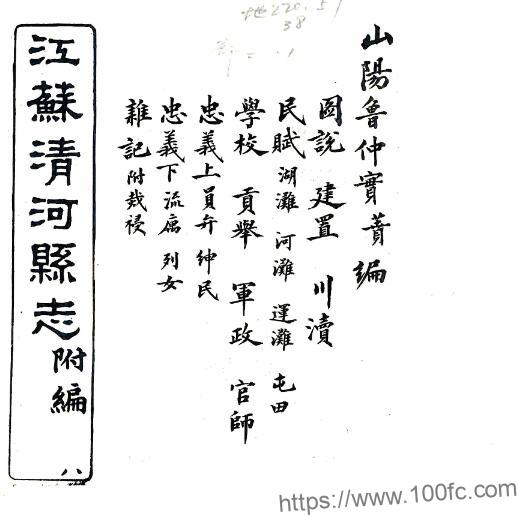 地220.51
38
山陽魯仲實蕢編
圖說 建置 川瀆
民賦 湖灘 河灘 運灘 屯田
學校 貢舉 軍政 官師
忠義上 員弁 紳民
忠義下 流寓 列女
雜記 附烖祲
江蘇清河縣志 附編
八
https://www.100fc.com